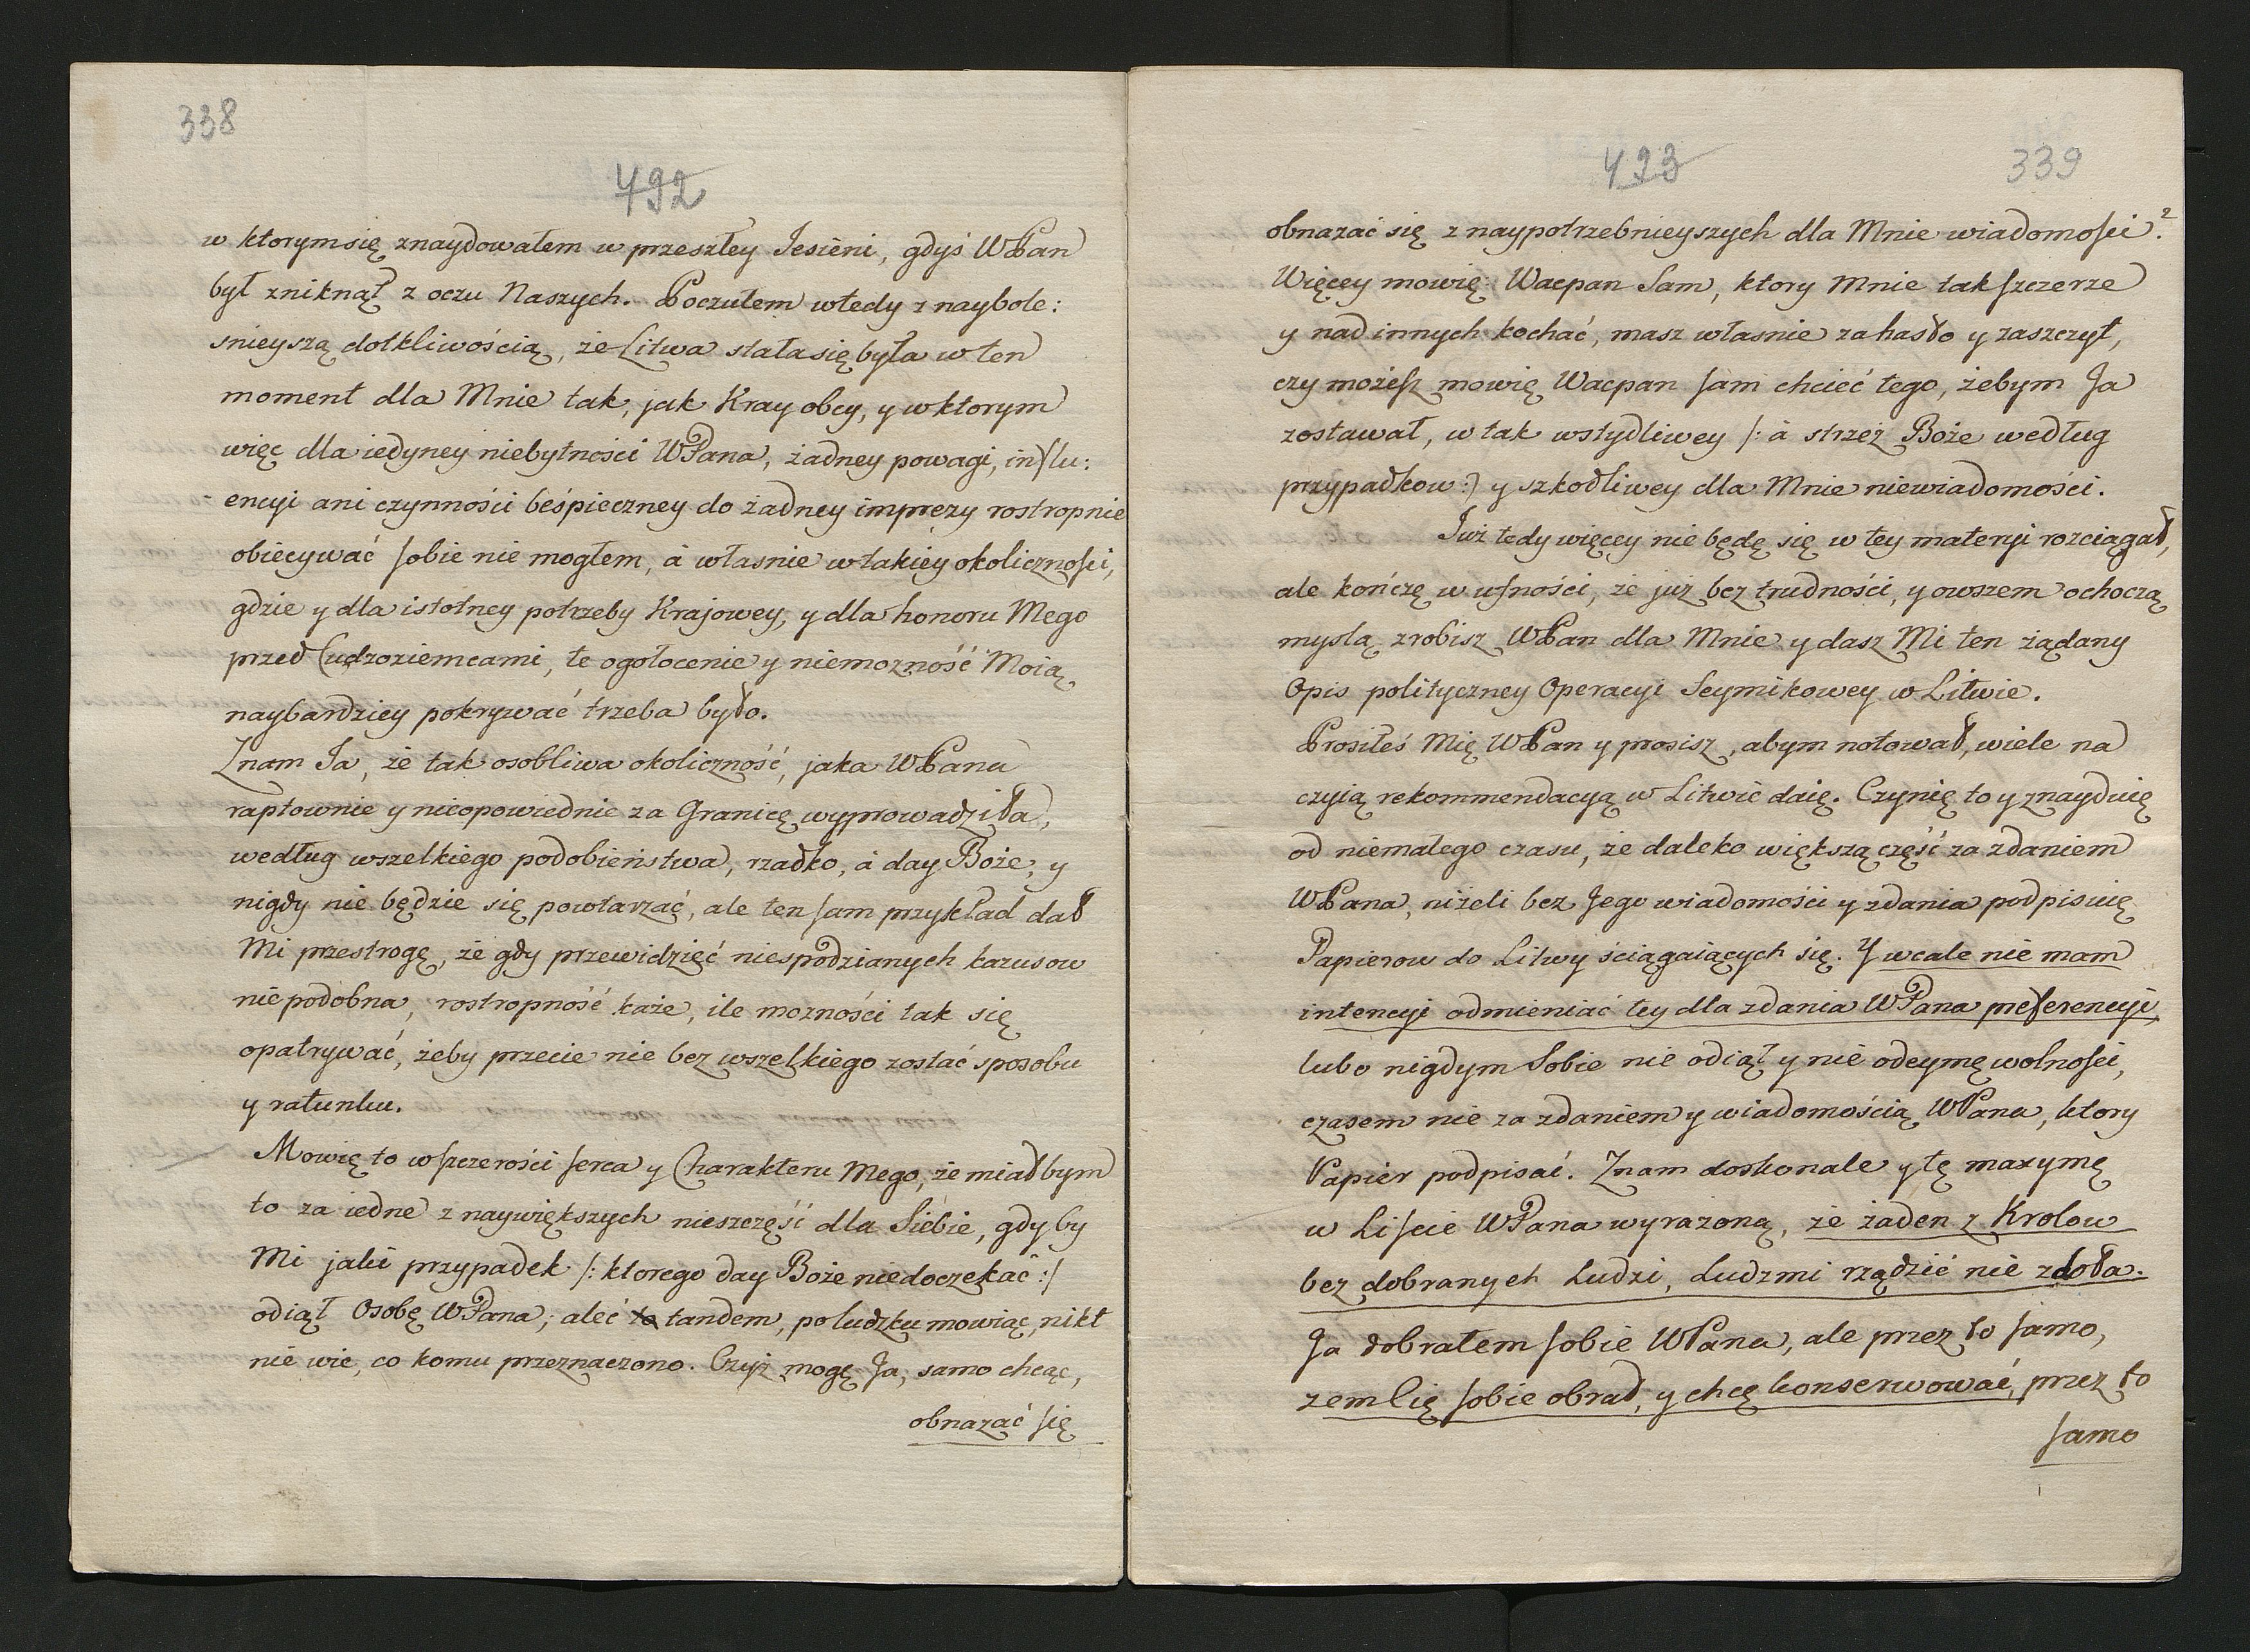 338
492
w ktorym się znaydowałem w przeszłey Jesieni, gdyś WPan
był zniknął z oczu Naszych. Poczułem wtedy z naybole:
snieyszą dotkliwością, że Litwa stała się była w ten
moment dla Mnie tak, jak Kray obcy, y w ktorym
więc dla iedyney niebytności WPana, żadney powagi, influ:
encyi ani czynności beśpieczney do żadney imprezy rostropnie
obiecywać sobie nie mogłem, à własnie w takiey okoliczności,
gdzie y dla istotney potrzeby Krajowey, y dla honoru Mego
przed Cudzoziemcami, te ogołocenie y niemozność Moią
naybardziey pokrywać trzeba było.
Znam Ja, że tak osobliwa okoliczność, jaka WPana
raptownie y nieopowiednie za Granicę wyprowadziła,
według wszelkiego podobieństwa, rzadko, à day Boże, y
nigdy nie będzie się powtarzać, ale ten sam przykład dał
Mi przestrogę, że gdy przewidzięć niespodzianych kazusow
niepodobna, rostropność każe, ile mozności tak się
opatrywać, żeby przecie nie bez wszelkiego zostać sposobu
y ratunku.
Mowię to w szczerości serca y Charakteru Mego, że miałbym
to za iedne z naywiększych nieszczęść dla Siebie, gdyby
Mi jaki przypadek /: ktorego day Boże niedoczekać :/
odiął Osobę WPana; aleć to tandem, po ludzku mowiąc, nikt
nie wie, co komu przeznaczono. Czyż mogę Ja, samo chcąc,
obnazać się
423
339
obnazać się z naypotrzebnieyszych dla Mnie wiadomości?
Więcey mowię: Wacpan Sam, ktory Mnie tak szczerze
y nad innych kochać, masz własnie za hasło y zaszczyt,
czy możesz mowię Wacpan sam chcieć tego, żebym Ja
zostawał, w tak wstydliwey /: à strzeż Boże według
przypadkow :/ y szkodliwey dla Mnie niewiadomości.
Już tedy więcey nie będę się w tey materyi rozciągał,
ale kończę w ufności, że już bez trudności, y owszem ochoczą
myslą zrobisz WPan dla Mnie y dasz Mi ten żądany
Opis polityczney Operacyi Seymikowey w Litwie.
Prosiłeś Mię WPan y prosisz, abym notował, wiele na
czyią rekommendacyą w Litwie daię. Czynię to y znayduię
od niemałego czasu, że daleko większą część za zdaniem
WPana, niżeli bez Jego wiadomości y zdania podpisuię
Papierow do Litwy ściągaiących się. Y wcale nie mam
intencyi odmieniać tey dla zdania WPana preferencyi,
lubo nigdym Sobie nie odiął y nie odeymę wolności,
czasem nie za zdaniem y wiadomością WPana, ktory
Papier podpisać. Znam doskonale y tę maxymę
w Liście WPana wyrazoną, że żaden z Krolow
bez dobranych Ludzi, Ludzmi rządzić nie zdoła.
Ja dobrałem sobie WPana, ale przez to samo,
zem Cię sobie obrał, y chcę konserwować, przez to
samo